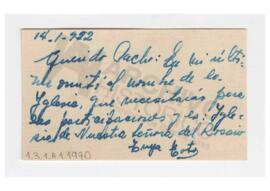 14.1-952
Querido Pacho: En mi últi-
ma omití el nombre de la
Iglesia, que necesitarás para
las participaciones y es: Igle-
sia de Nuestra Señora del Rosario
Tuya
1.3.1.A1 1970